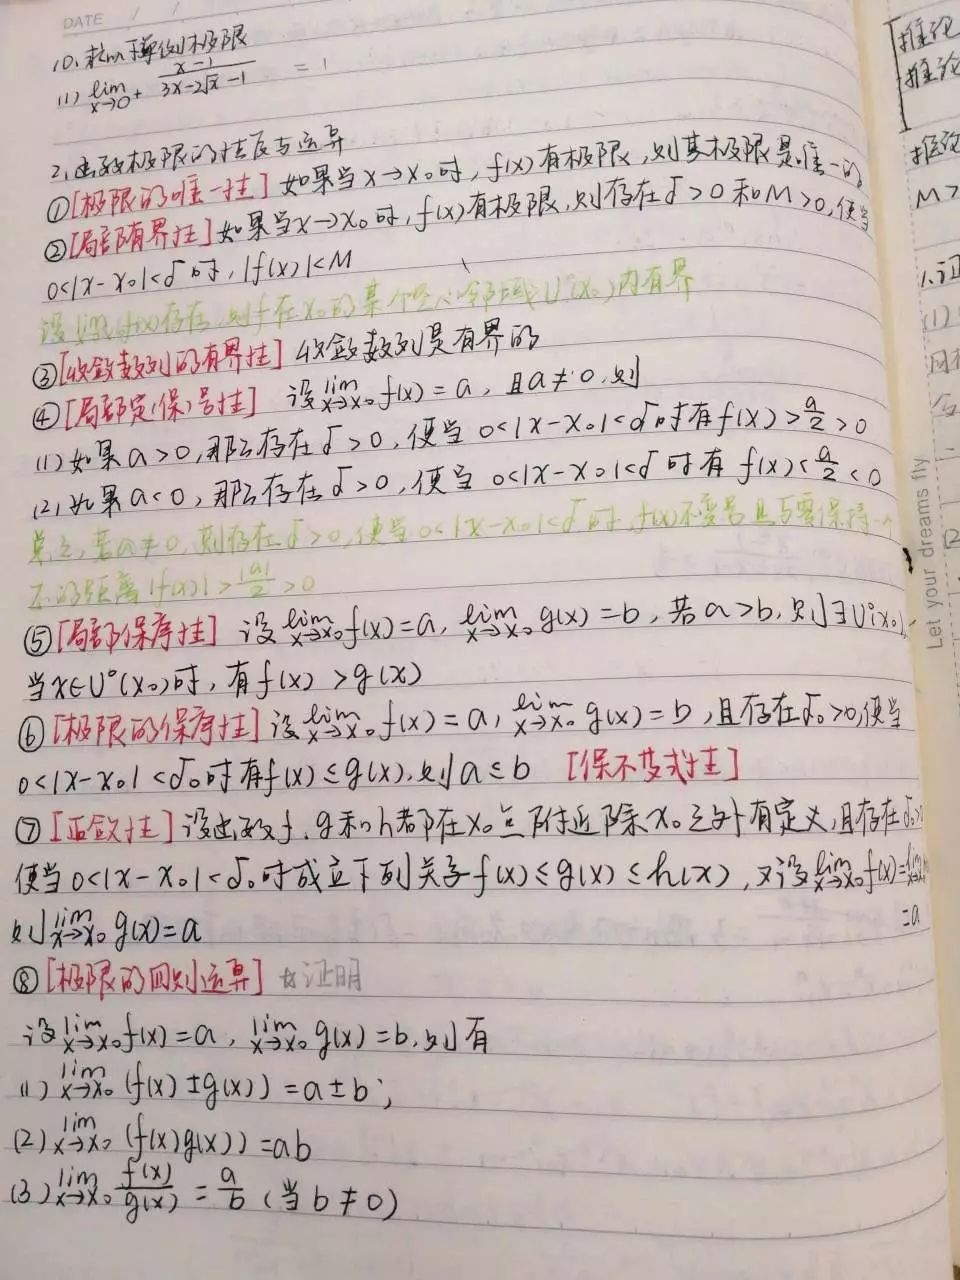 DATE / /
10. 求下列极限
(1) lim x→0+ (x-1)/(3x-2√x-1) = 1
2. 函数极限的性质与运算
①[极限的唯一性] 如果当x→x₀时, f(x)有极限, 则其极限是唯一的
②[局部有界性] 如果当x→x₀时, f(x)有极限, 则存在δ>0和M>0, 使当
0<|x-x₀|<δ时, |f(x)|<M
设 lim f(x)存在, 则f在x₀的某个空心邻域U°(x₀)内有界
③[收敛数列的有界性] 收敛数列是有界的
④[局部定(保)号性] 设 lim x→x₀ f(x)=a, 且a≠0, 则
(1) 如果a>0, 那么存在δ>0, 使当 0<|x-x₀|<δ时有f(x)>a/2>0
(2) 如果a<0, 那么存在δ>0, 使当 0<|x-x₀|<δ时有 f(x)<a/2<0
总之, 若a≠0, 则存在δ>0, 使当0<|x-x₀|<δ时, f(x)不变号且与零保持一
的距离 |f(x)|>|a|/2>0
⑤[局部保序性] 设 lim x→x₀ f(x)=a, lim x→x₀ g(x)=b, 若a>b, 则∃U°(x₀),
当x∈U°(x₀)时, 有f(x)>g(x)
⑥[极限的保序性] 设 lim x→x₀ f(x)=a, lim x→x₀ g(x)=b, 且存在δ₀>0, 使当
0<|x-x₀|<δ₀时有f(x)≤g(x), 则a≤b [保不等式性]
⑦[迫敛性] 设函数f, g和h都在x₀点附近除x₀之外有定义, 且存在δ₀>
使当0<|x-x₀|<δ₀时成立下列关系f(x)≤g(x)≤h(x), 又设 lim x→x₀ f(x)=lim
=a
则 lim x→x₀ g(x)=a
⑧[极限的四则运算] ☆证明
设 lim x→x₀ f(x)=a, lim x→x₀ g(x)=b, 则有
(1) lim x→x₀ (f(x)±g(x))=a±b;
(2) lim x→x₀ (f(x)g(x))=ab
(3) lim x→x₀ f(x)/g(x) = a/b (当b≠0)
Let your dreams fly
推论
推论
推论
M>
1.证
(1)